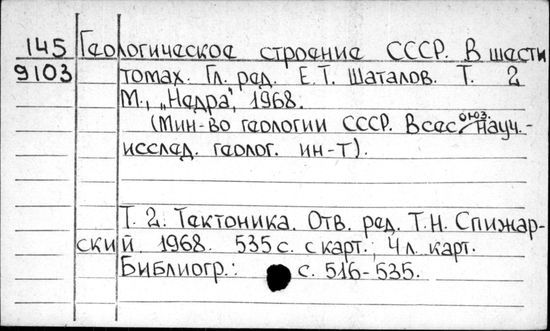 145 Геологическое строение СССР. В шести
9103 томах. Гл. ред. Е.Т. Шаталов. Т. 2
М., „Недра", 1968.
(Мин-во геологии СССР. Всесоюз. науч.-
исслед. геолог. ин-т).
Т. 2. Тектоника. Отв. ред. Т.Н. Спижар-
ский. 1968. 535 с. с карт.; 4 л. карт.
Библиогр.: с. 516-535.